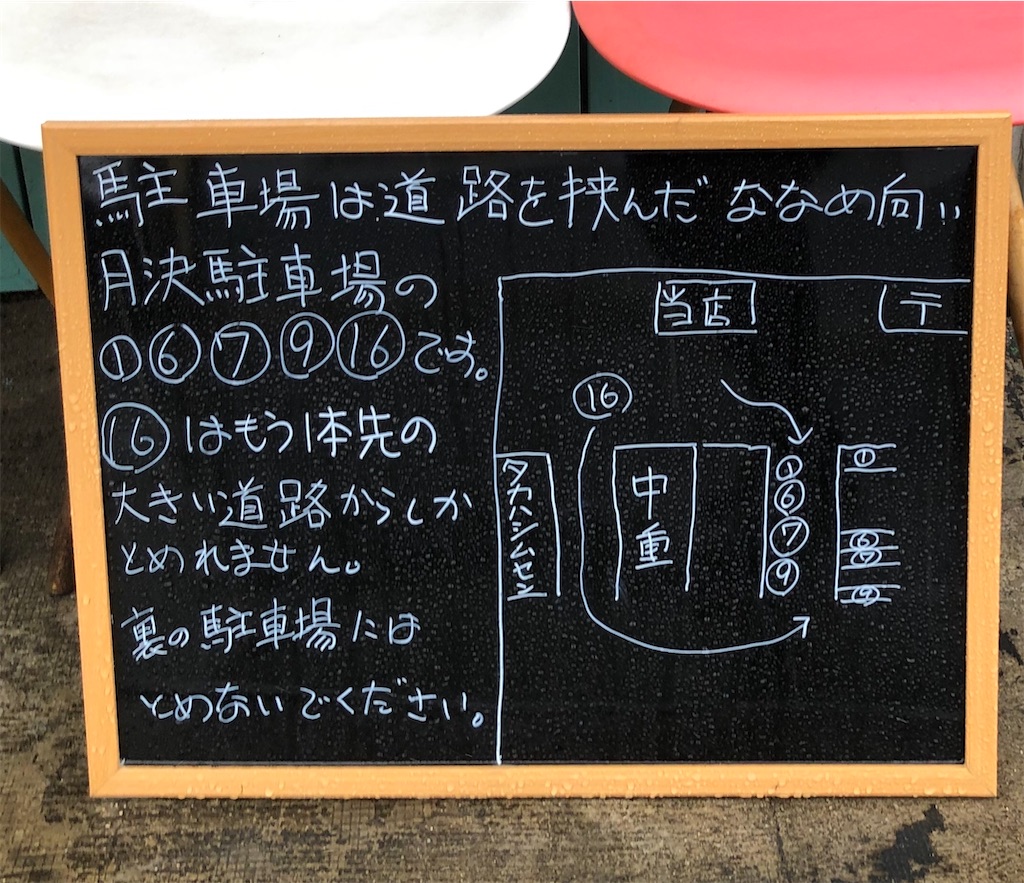 駐車場は道路を挟んだ ななめ向い
月決駐車場の
①⑥⑦⑨⑯です。
⑯はもう1本先の
大きい道路からしか
とめれません。
裏の駐車場には
とめないでください。
当店
〒
⑯
タカハシムセン
中重
①
⑥
⑦
⑨
①
⑥
⑦
⑨